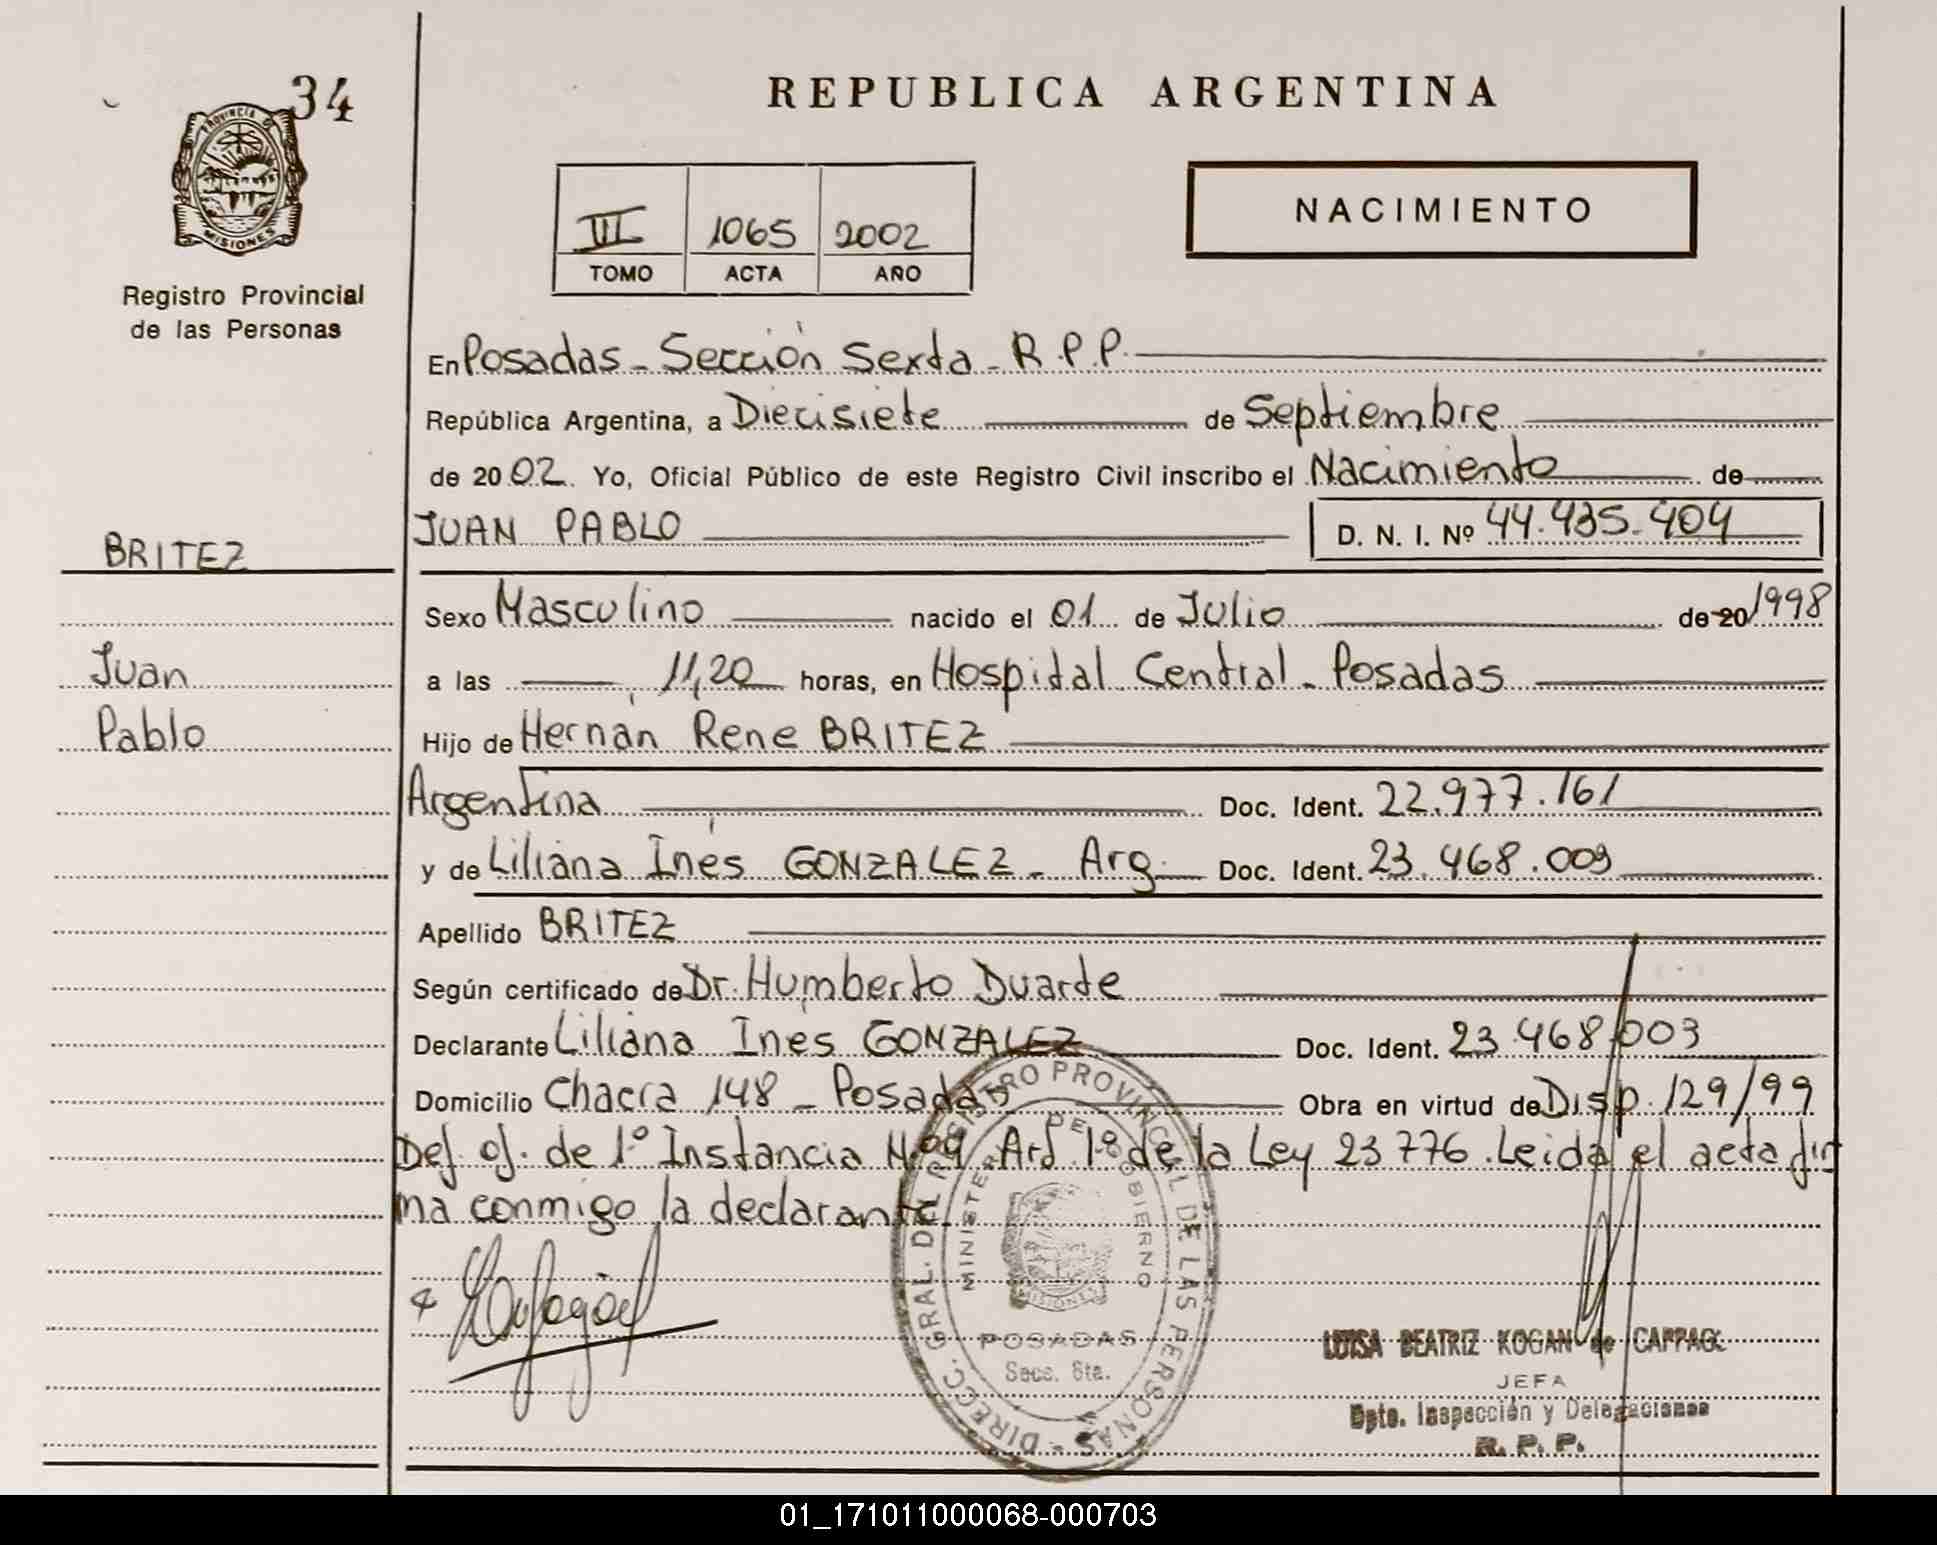 34
PROVINCIA DE
MISIONES
Registro Provincial
de las Personas
REPUBLICA ARGENTINA
III 1065 2002
TOMO ACTA AÑO
NACIMIENTO
En Posadas - Sección Sexta - R.P.P.
República Argentina, a Diecisiete de Septiembre
de 2002. Yo, Oficial Público de este Registro Civil inscribo el Nacimiento de
BRITEZ
JUAN PABLO D. N. I. Nº 44.435.404
Sexo Masculino nacido el 01 de Julio de 20 1998
Juan
a las 11,20 horas, en Hospital Central - Posadas
Pablo
Hijo de Hernán Rene BRITEZ
Argentina Doc. Ident. 22.977.161
y de Liliana Inés GONZALEZ - Arg. Doc. Ident. 23.468.003
Apellido BRITEZ
Según certificado de Dr. Humberto Duarte
Declarante Liliana Inés GONZALEZ Doc. Ident. 23.468.003
Domicilio Chacra 148 - Posadas Obra en virtud de Disp. 129/99
Def. of. de 1º Instancia Nº 09 Art 1º de la Ley 23776. Leida el acta fir
ma conmigo la declarante.
DIRECC. GRAL. DEL REGISTRO PROVINCIAL DE LAS PERSONAS
MINISTERIO DE GOBIERNO
MISIONES
POSADAS
Secc. 6ta.
LUISA BEATRIZ KOGAN de
JEFA
Dpto. Inspección y Delegaciones
R. P. P.
01_171011000068-000703